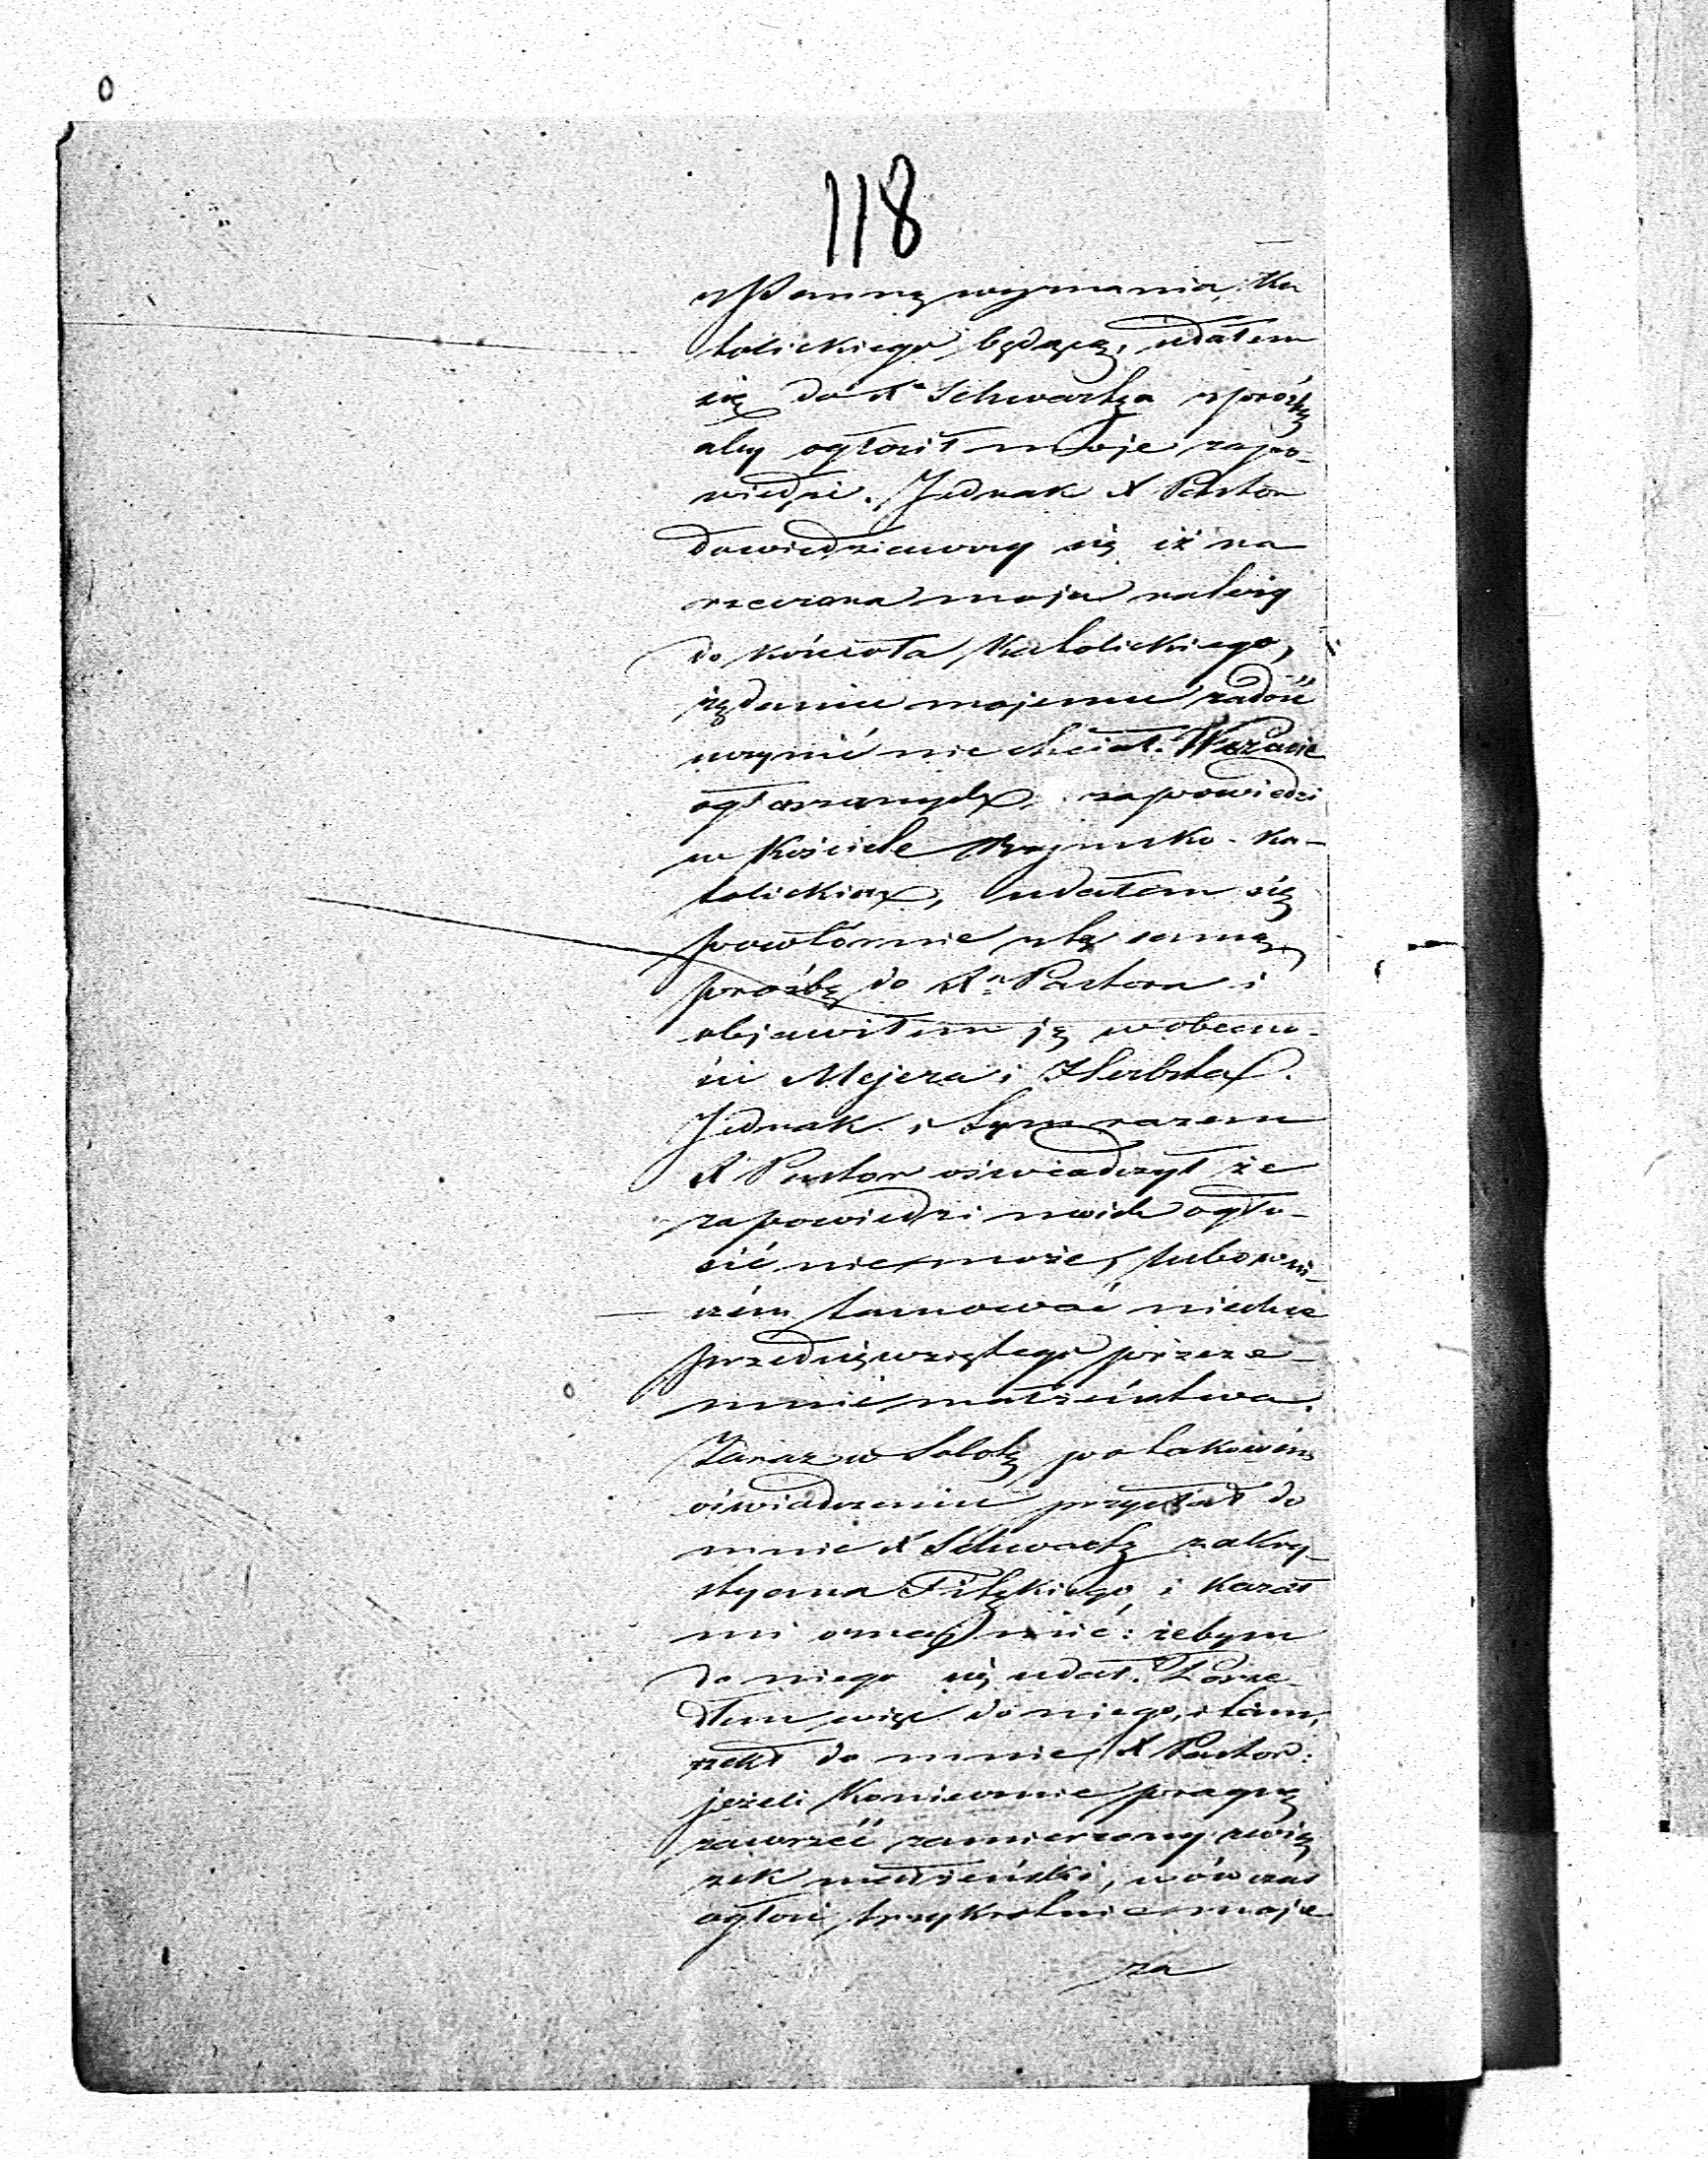 118
z Panną wyznania Ka
tolickiego będącą, udałem
się do X Schwartza z prośbą
aby ogłosił moje zapo-
wiedzi. Jednak X Pastor
dowiedziawszy się iż na
rzeczona moja należy
do kościoła Katolickiego,
żądaniu mojemu zadość
uczynić nie chciał. W czasie
ogłaszanych zapowiedzi
w Kościele Rzymsko-Ka-
tolickim, udałem się
powtórnie z tą samą
prośbą do Xa Pastora i
objawiłem ją w obecno-
ści Mejera i Herbsta.
Jednak i tym razem
X Pastor oświadczył że
zapowiedzi moich ogło-
sić nie może, lubo w ni-
czém tamować niechce
przedsięwziętego przeze-
mnie małżeństwa.
Zaraz w Sobotę po takowém
oświadczeniu przysłał do
mnie X Schwartz zakry-
styana Filzkiego i kazał
mi oznajmić: żebym
do niego się udał. Posze-
dłem więc do niego, i tam,
rzekł do mnie X Pastor:
jeżeli koniecznie pragnę
zawrzéć zamierzony zwią
zek małżeński, wówczas
ogłosi trzykrotnie moje
za